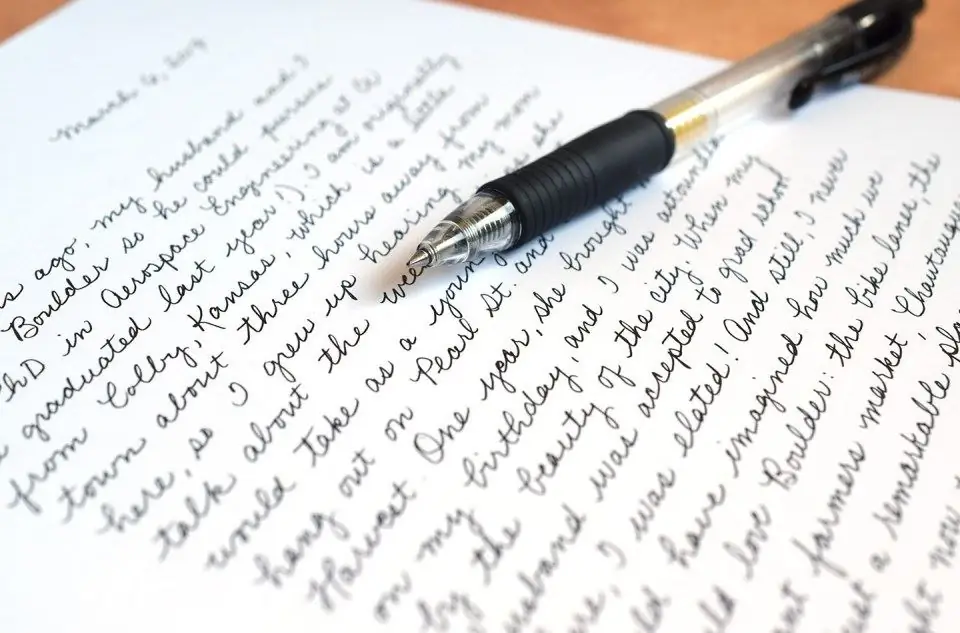 March 6,
ago, my husband and I
Boulder so he could pursue
PhD in Aerospace Engineering at
graduated last year!). I am originally
from Colby, Kansas, which is a little
town about three hours away from
here, so I grew up hearing my mom
talk about the she
would take as a young
hang out on Pearl St. and
Harvest. One year, she brought
on my birthday, and I was
by the beauty of the city. When my
usband was accepted to grad school
re, I was elated! And still, I never
ld have imagined how much we
ld love Boulder: the bike lanes, the
ant farmers market, Chautauqua
a remarkable pla
ght now